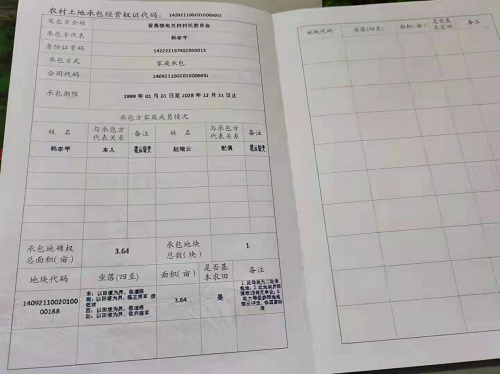 农村土地承包经营权证代码：140921100201000885J
发包方全称 晋昌镇南关村村民委员会
承包方代表 韩孝平
身份证号码 142222197402050013
承包方式 家庭承包
合同代码 140921100201000885J
承包期限 1999 年 01 月 01 日至 2028 年 12 月 31 日止
承包方家庭成员情况
姓 名 与承包方代表关系 备注 姓 名 与承包方代表关系 备注
韩孝平 本人 赵瑞云 配偶
承包地确权总面积(亩) 3.64 承包地块总数(块) 1
地块代码 坐落(四至) 面积(亩) 是否基本农田 备注
1409211002010000188 3.64 是
东：以田埂为界，
南：以田埂为界，
西：以田埂为界，
北：以田埂为界，
地块代码 坐落(四至) 面积(亩) 是否基本农田 备注